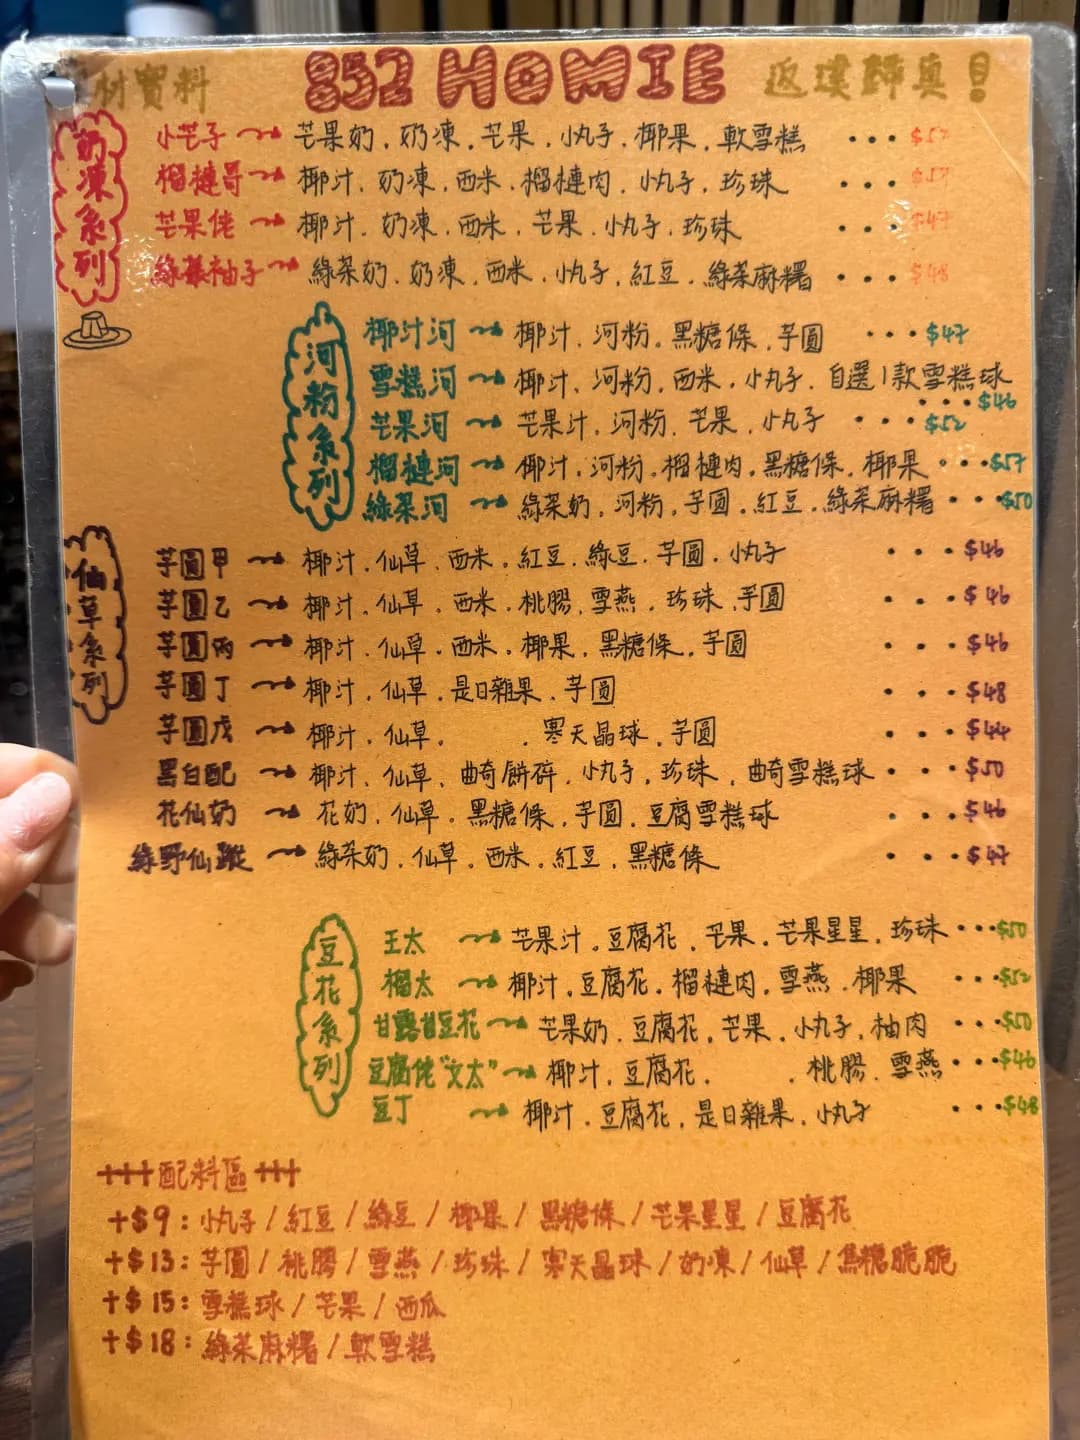 材實料 852 HOMIE 返璞歸真!
奶凍系列
小芒子 芒果奶.奶凍.芒果.小丸子.椰果.軟雪糕 ... $52
榴槤哥 椰汁.奶凍.西米.榴槤肉.小丸子.珍珠 ... $57
芒果佬 椰汁.奶凍.西米.芒果.小丸子.珍珠 ... $47
綠裝袖子 綠茶奶.奶凍.西米.小丸子.紅豆.綠茶麻糬 ... $48
河粉系列
椰汁河 椰汁.河粉.黑糖條.芋圓 ... $47
雪糕河 椰汁.河粉.西米.小丸子.自選1款雪糕球
... $46
芒果河 芒果汁.河粉.芒果.小丸子 ... $52
榴槤河 椰汁.河粉.榴槤肉.黑糖條.椰果 ... $57
綠茶河 綠茶奶.河粉.芋圓.紅豆.綠茶麻糬 ... $50
仙草系列
芋圓甲 椰汁.仙草.西米.紅豆.綠豆.芋圓.小丸子 ... $46
芋圓乙 椰汁.仙草.西米.桃膠.雪燕.珍珠.芋圓 ... $46
芋圓丙 椰汁.仙草.西米.椰果.黑糖條.芋圓 ... $46
芋圓丁 椰汁.仙草.是日雜果.芋圓 ... $48
芋圓戊 椰汁.仙草. .寒天晶球.芋圓 ... $44
黑白配 椰汁.仙草.曲奇餅碎.小丸子.珍珠.曲奇雪糕球 ... $50
花仙奶 花奶.仙草.黑糖條.芋圓.豆腐雪糕球 ... $46
綠野仙蹤 綠茶奶.仙草.西米.紅豆.黑糖條 ... $47
豆花系列
王太 芒果汁.豆腐花.芒果.芒果星星.珍珠 ... $50
榴太 椰汁.豆腐花.榴槤肉.雪燕.椰果 ... $52
甘露甘豆花 芒果奶.豆腐花.芒果.小丸子.柚肉 ... $50
豆腐佬"文太" 椰汁.豆腐花. .桃膠.雪燕 ... $46
豆丁 椰汁.豆腐花.是日雜果.小丸子 ... $48
+++配料區+++
+$9:小丸子/紅豆/綠豆/椰果/黑糖條/芒果星星/豆腐花
+$13:芋圓/桃膠/雪燕/珍珠/寒天晶球/奶凍/仙草/焦糖脆脆
+$15:雪糕球/芒果/西瓜
+$18:綠茶麻糬/軟雪糕